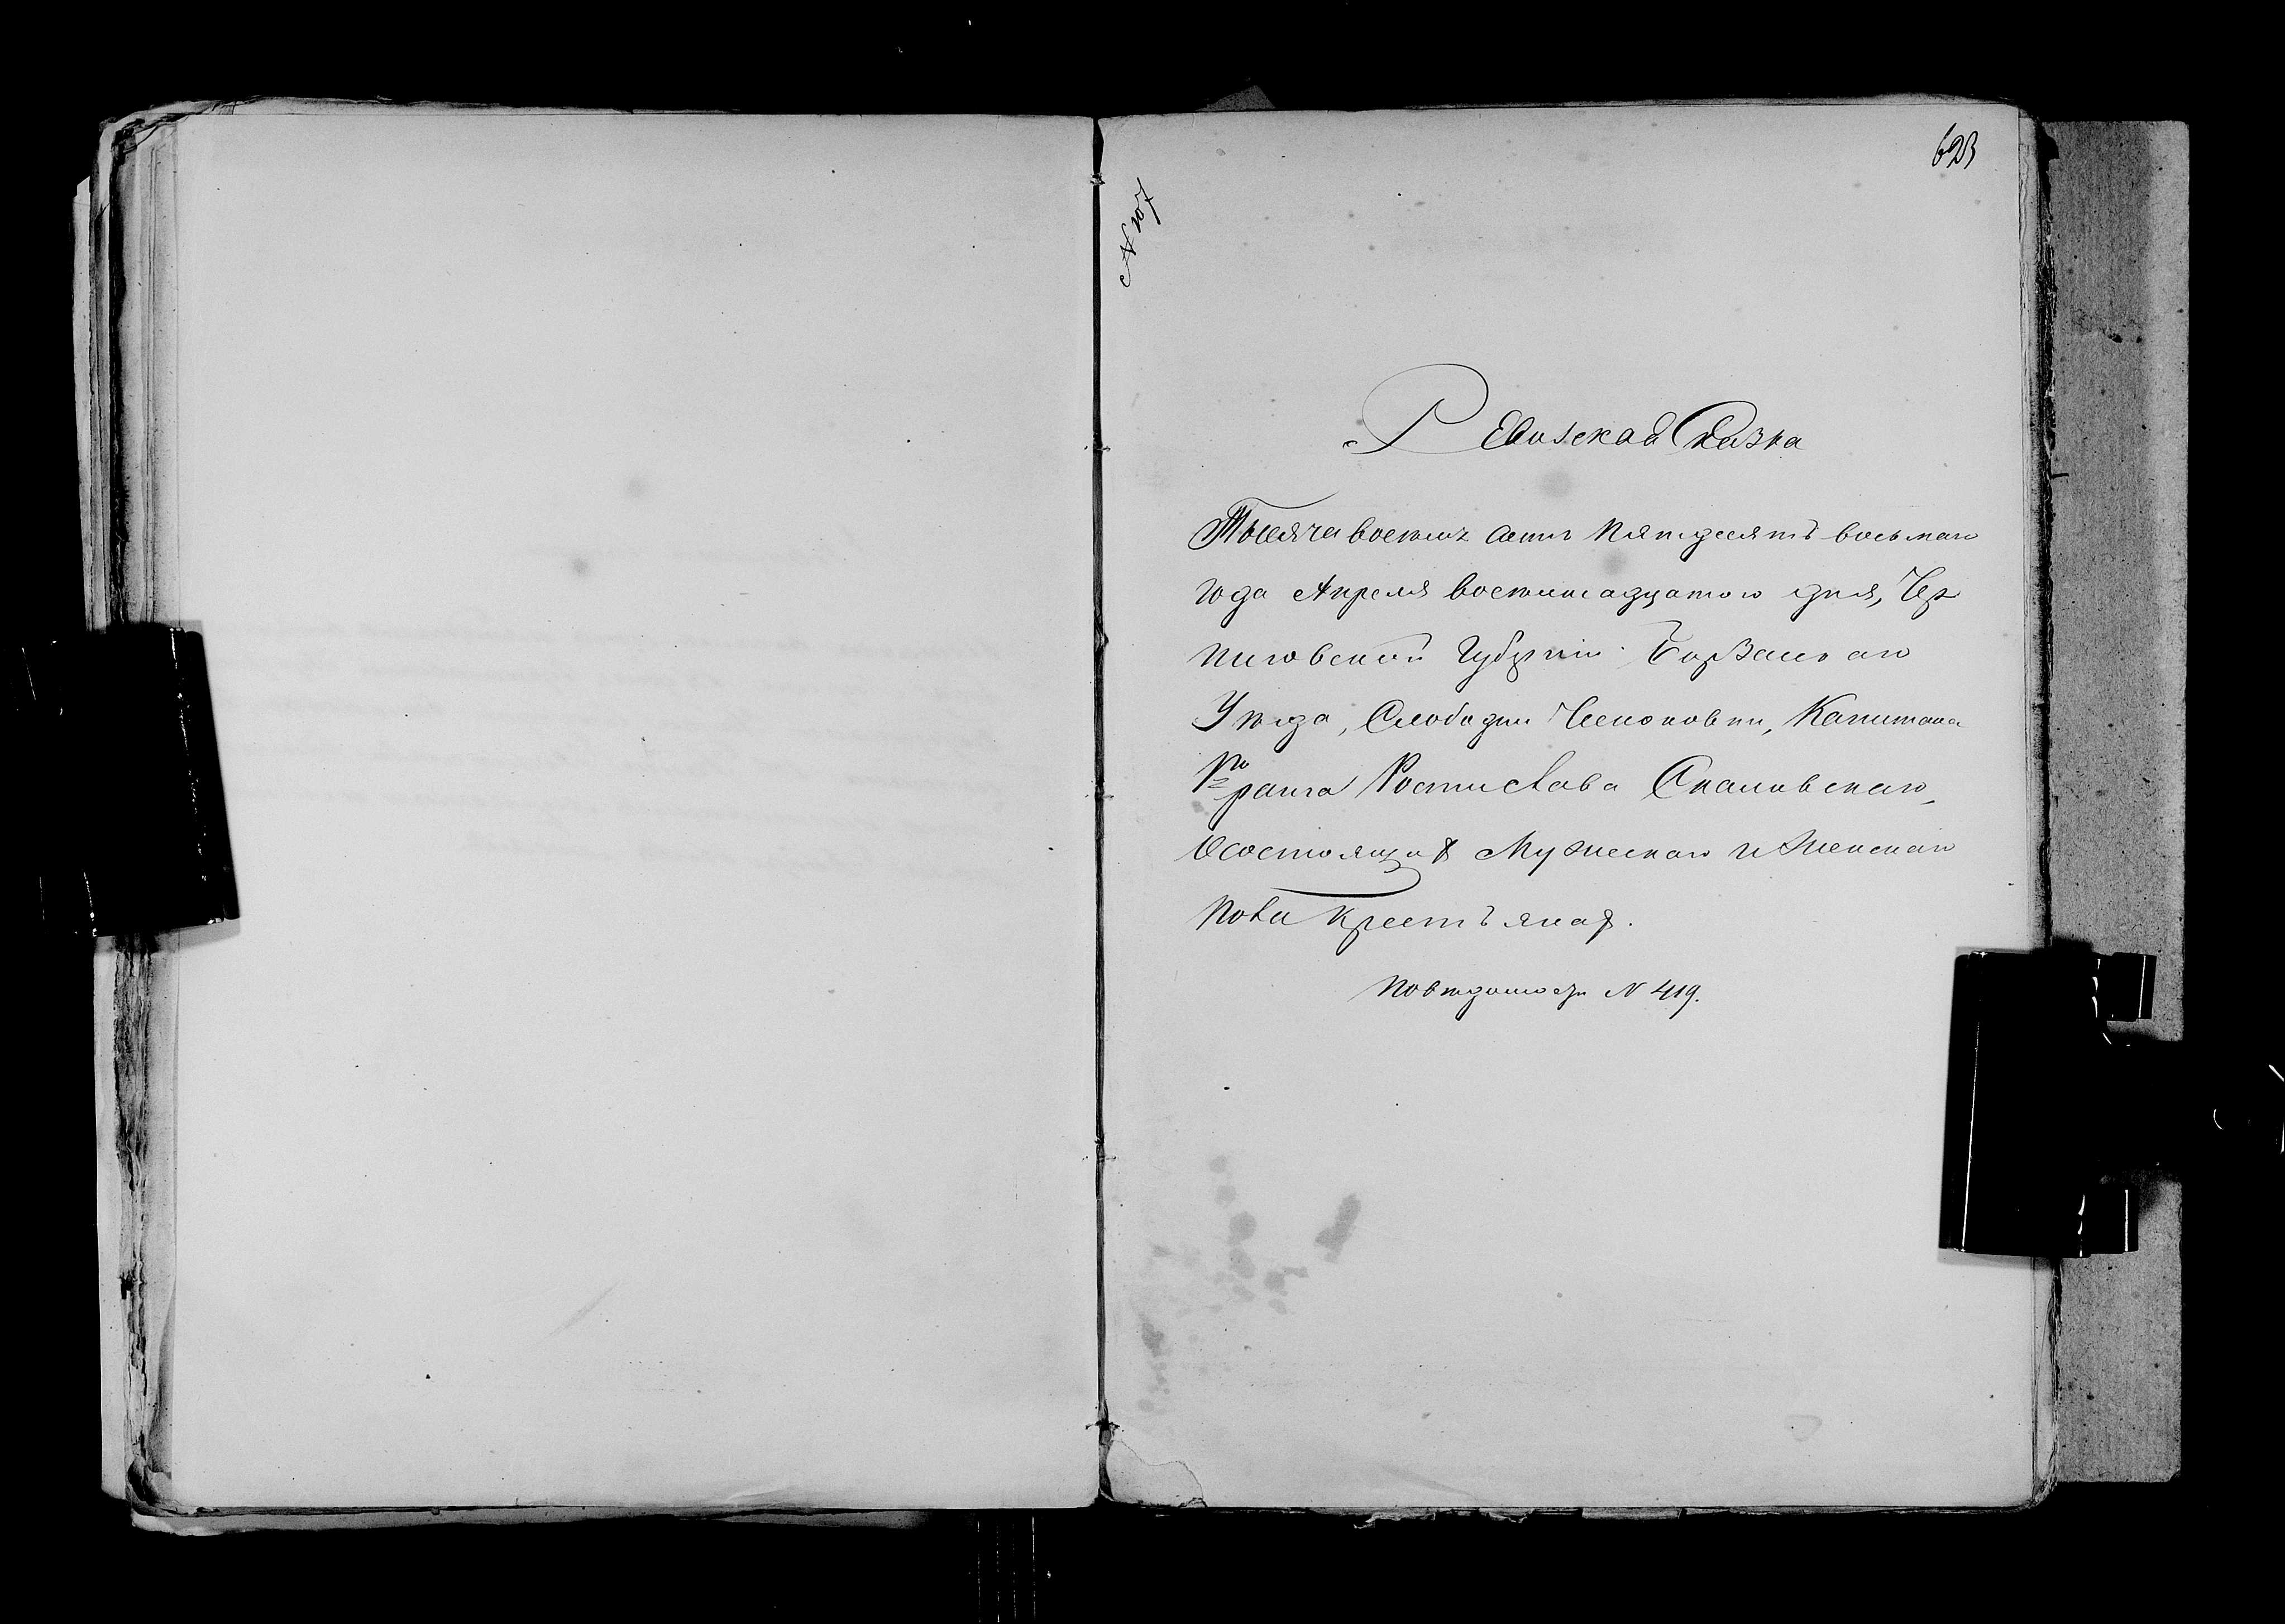 623
N 107
Ревизская Сказка
Тысяча восемь сотъ Пятдесятъ восьмаго
года Апреля восемнадцатого дня, Чер
ниговской Губерніи Борзенскаго
Уѣзда, Слободы, Капитана
1го ранга Ростислава Скаловскаго,
О состоящих Мужескаго и Женскаго
пола крестьянах.
По вѣдомости N 419.